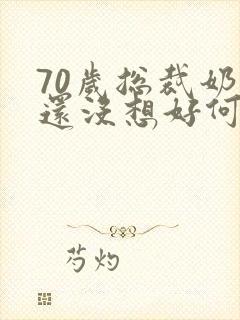 70歲總裁奶
還沒想好何
芍灼